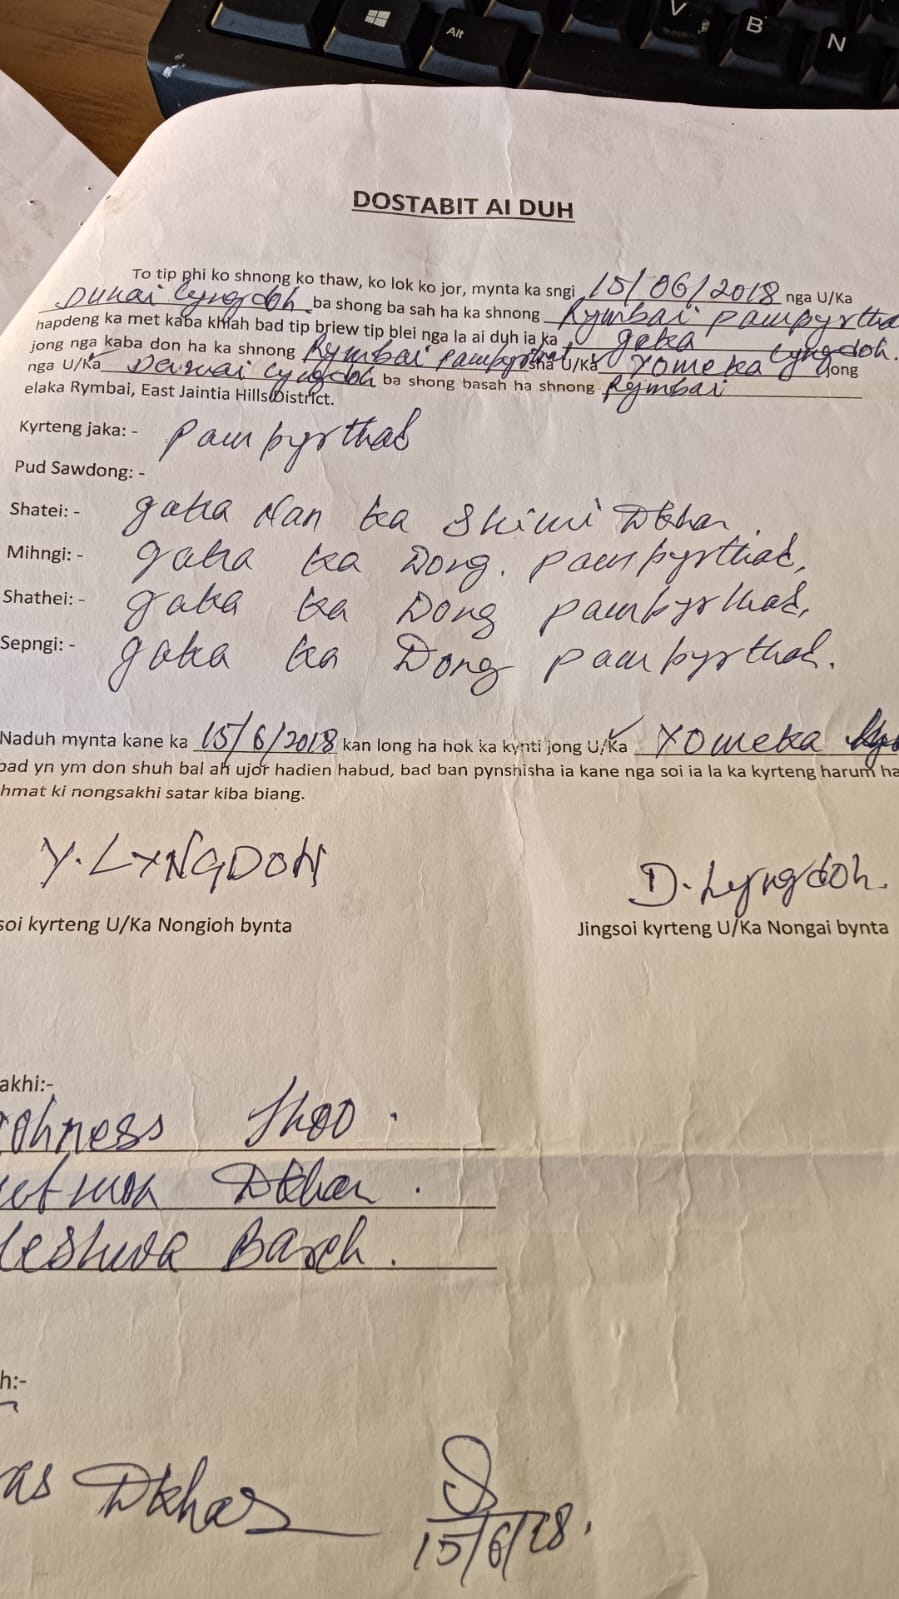 Alt
V
B
N
DOSTABIT AI DUH
To tip phi ko shnong ko thaw, ko lok ko jor, mynta ka sngi 15/06/2018 nga U/Ka
Lyngdoh ba shong ba sah ha ka shnong Rymbai pampyrtha
hapdeng ka met kaba khiah bad tip briew tip blei nga la ai duh ia ka gaka
jong nga kaba don ha ka shnong Rymbai pampyrthat sha U/Ka Yomeka Lyngdoh. jong
nga U/Ka Lyngdoh ba shong basah ha shnong Rymbai
elaka Rymbai, East Jaintia Hills District.
Kyrteng jaka: - pampyrthat
Pud Sawdong: -
Shatei: - gaka Nan ka Skimi Dkhar.
Mihngi: - gaka ka Dong. pampyrthat,
Shathei: - gaka ka Dong pampyrthat,
Sepngi: - gaka ka Dong pampyrthat.
Naduh mynta kane ka 15/6/2018 kan long ha hok ka kynti jong U/Ka Yomeka
bad yn ym don shuh bal ah ujor hadien habud, bad ban pynshisha ia kane nga soi ia la ka kyrteng harum ha
hmat ki nongsakhi satar kiba biang.
Y. LYNGDOH
D. Lyngdoh.
soi kyrteng U/Ka Nongioh bynta
Jingsoi kyrteng U/Ka Nongai bynta
akhi:-
ohness
Dkhar.
Bareh.
h:-
as Dkhar
15/6/18.